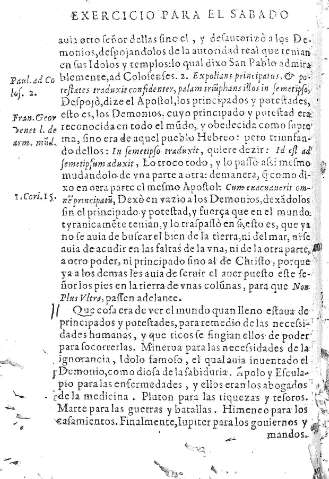 EXERCICIO PARA EL SABADO
auia otro señor dellas sino el, y desautorizò a los De-
monios, despojandolos de la autoridad real que tenian
en sus Idolos y templos: lo qual dixo San Pablo admira
blemente, ad Colosenses. 2. Expolians principatus, & po-
testates traduxit confidenter, palam triũphans illos in semetipso,
Despojò, dize el Apostol, los principados y potestades,
esto es, los Demonios, cuyo principado y potestad era
reconocida en todo el mundo, y obedecida como supre
ma, sino era de aquel pueblo Hebreo: pero triunfan-
do dellos: In semetipso traduxit, quiere dezir: Id est ad
semetipsum aduxit, Lo troco todo, y lo passò assi mesmo
mudandolo de vna parte a otra: demanera, q̃ como di-
xo en otra parte el mesmo Apostol: Cum euacuauerit om-
nẽ principatũ, Dexò en vazio a los Demonios, dexãdolos
sin el principado y potestad, y fuerça que en el mundo
tyranicamẽte tenian, y lo traspassò en sì, esto es, que ya
no se auia de buscar el bien de la tierra, ni del mar, ni se
auia de acudir en las faltas de la vna, ni de la otra parte,
a otro poder, ni principado sino al de Christo, porque
ya a los demas les auia de seruir el auer puesto este se-
ñor los pies en la tierra de vnas colunas, para que Non
Plus Vltra, passen adelante.
Que cosa era de ver el mundo quan lleno estaua de
principados y potestades, para remedio de las necessi-
dades humanas, y que ricos se fingian ellos de poder
para socorrerlas. Minerua para las necessidades de la
ignorancia, Idolo famoso, el qual auia inuentado el
Demonio, como diosa de la sabiduria. Apolo y Escula-
pio para las enfermedades, y ellos eran los abogados
de la medicina. Platon para las riquezas y tesoros.
Marte para las guerras y batallas. Himeneo para los
casamientos. Finalmente, Iupiter para los gouiernos y
mandos.
Paul. ad Co
los. 2.
Fran. Geor
1. Cori. 15.